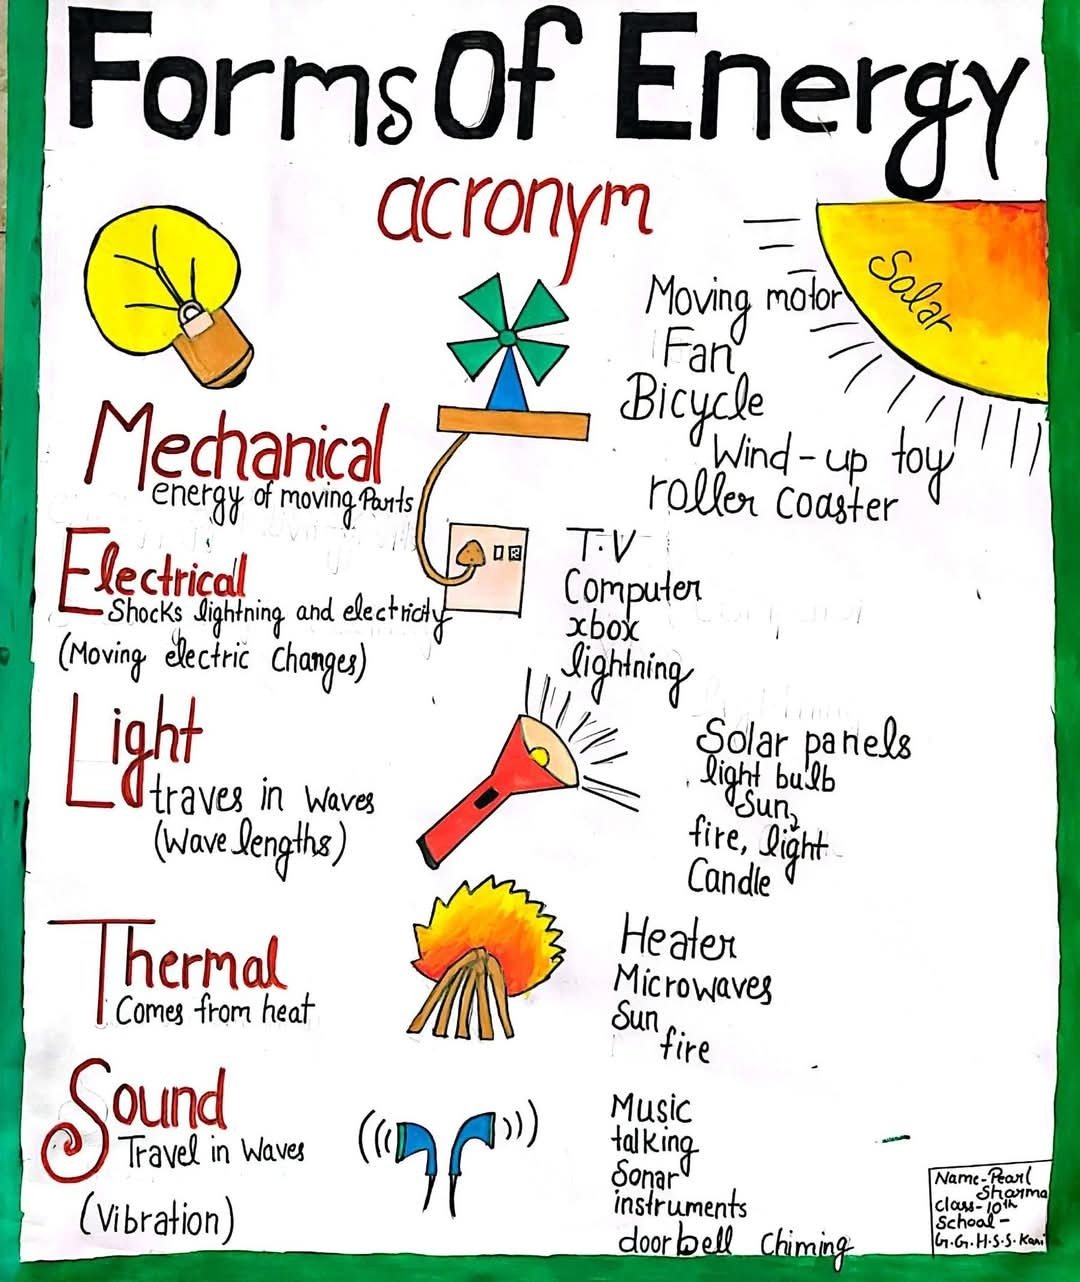 Forms Of Energy
acronym
Solar
Moving motor
Fan
Bicycle
Wind-up toy
roller coaster
Mechanical
energy of moving Parts
Electrical
Shocks lightning and electricity
(Moving electric Changes)
T.V
Computer
xbox
lightning
Light
traves in waves
(Wave lengths)
Solar panels
light bulb
Sun,
fire, light
Candle
Thermal
Comes from heat
Heater
Microwaves
Sun
fire
Sound
Travel in Waves
(Vibration)
Music
talking
Sonar
instruments
doorbell Chiming
Name-Pearl
Sharma
Class-10th
School-
G.G.H.S.S.